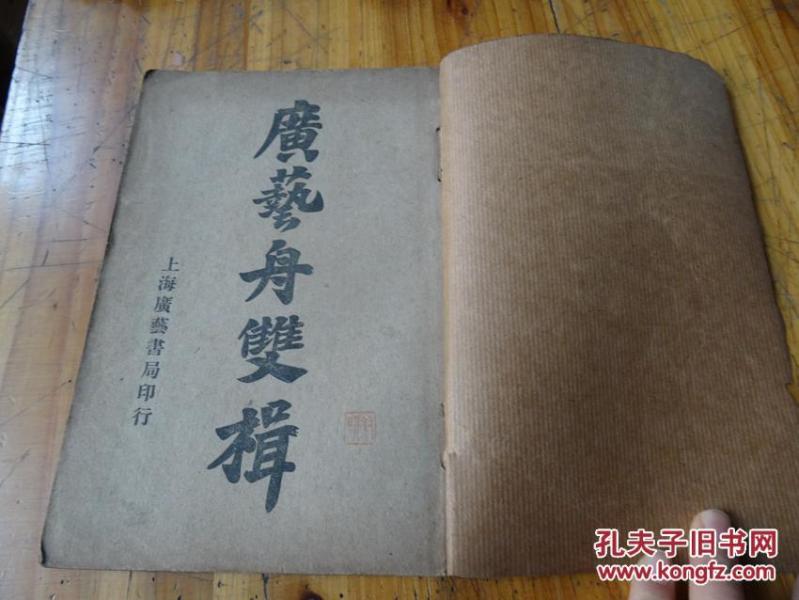 廣藝舟雙楫
上海廣藝書局印行
孔夫子旧书网
www.kongfz.com